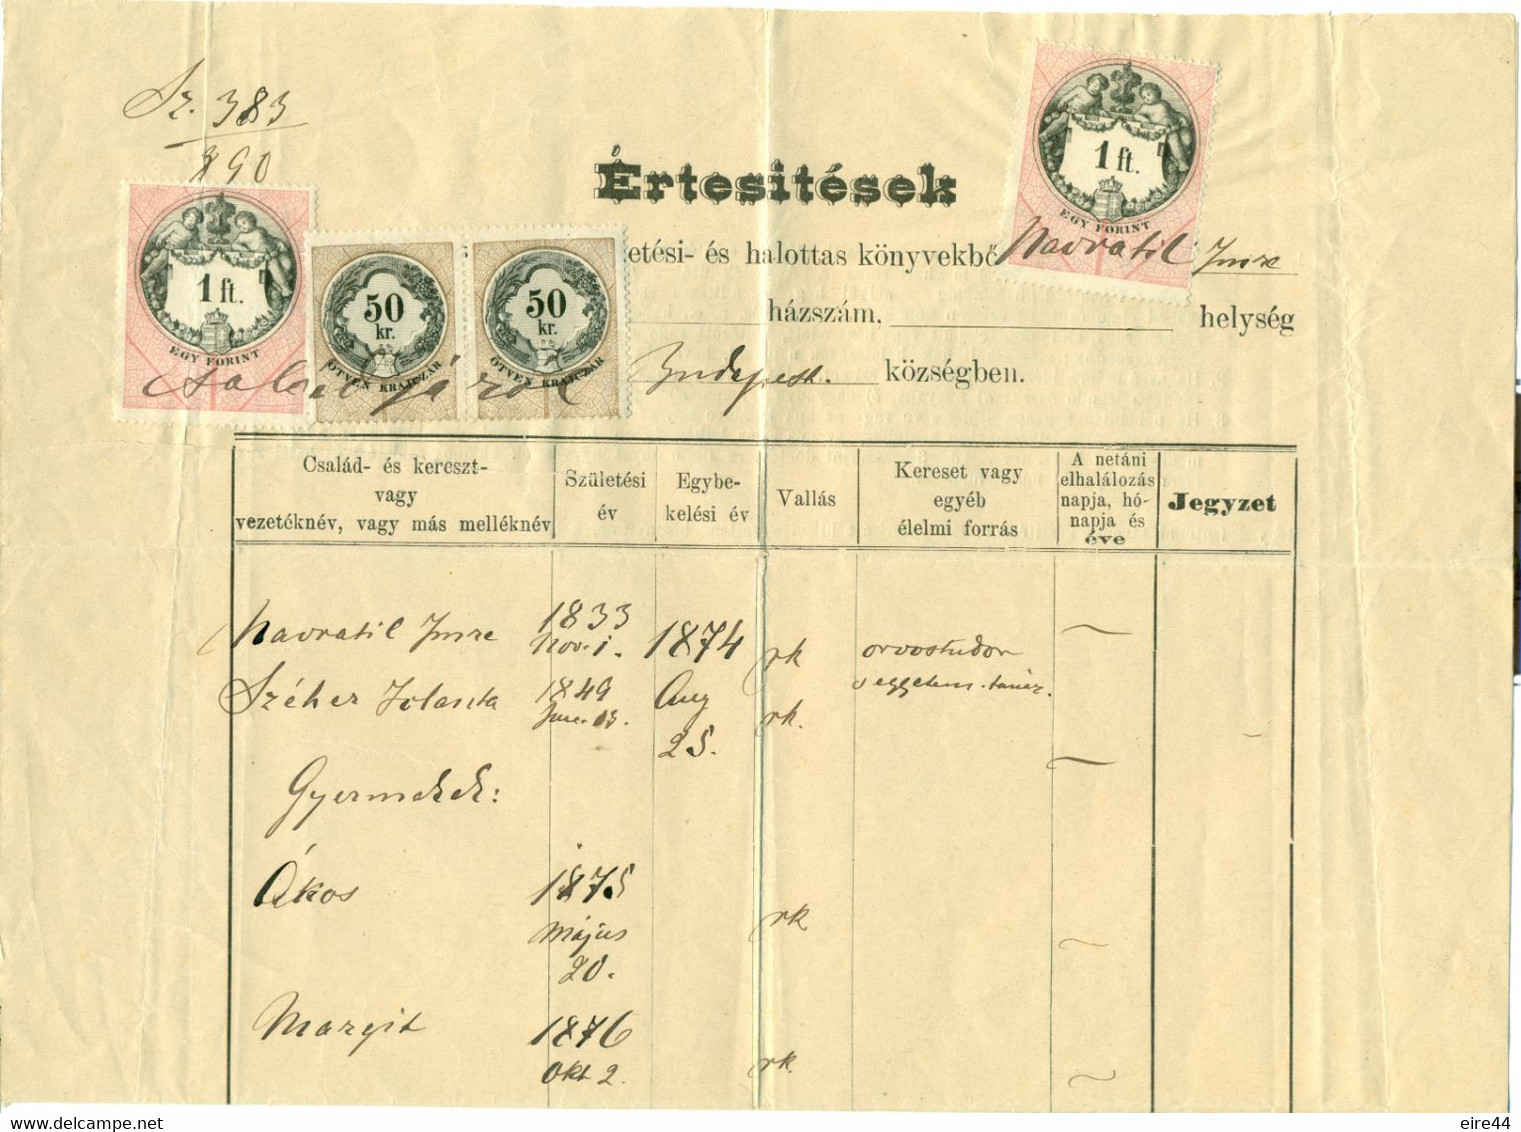 Sz. 383
890
Értesitések
1 ft.
EGY FORINT
1 ft.
EGY FORINT
50
kr.
ÖTVEN KRAJCZÁR
50
kr.
ÖTVEN KRAJCZÁR
letési- és halottas könyvekbő Navratil Imre
házszám, helység
család járól
Budapest. községben.
Család- és kereszt-
vagy
vezetéknév, vagy más melléknév
Születési
év
Egybe-
kelési év
Vallás
Kereset vagy
egyéb
élelmi forrás
A netáni
elhalálozás
napja, hó-
napja és
éve
Jegyzet
Navratil Imre 1833 Nov. 1. 1874 rk orvostudor
egyetem. tanár.
Széher Jolanta 1849 Aug rk.
25.
Gyermekek:
Ákos 1875 rk
Május
20.
Margit 1876 rk.
Okt 2.
eire44